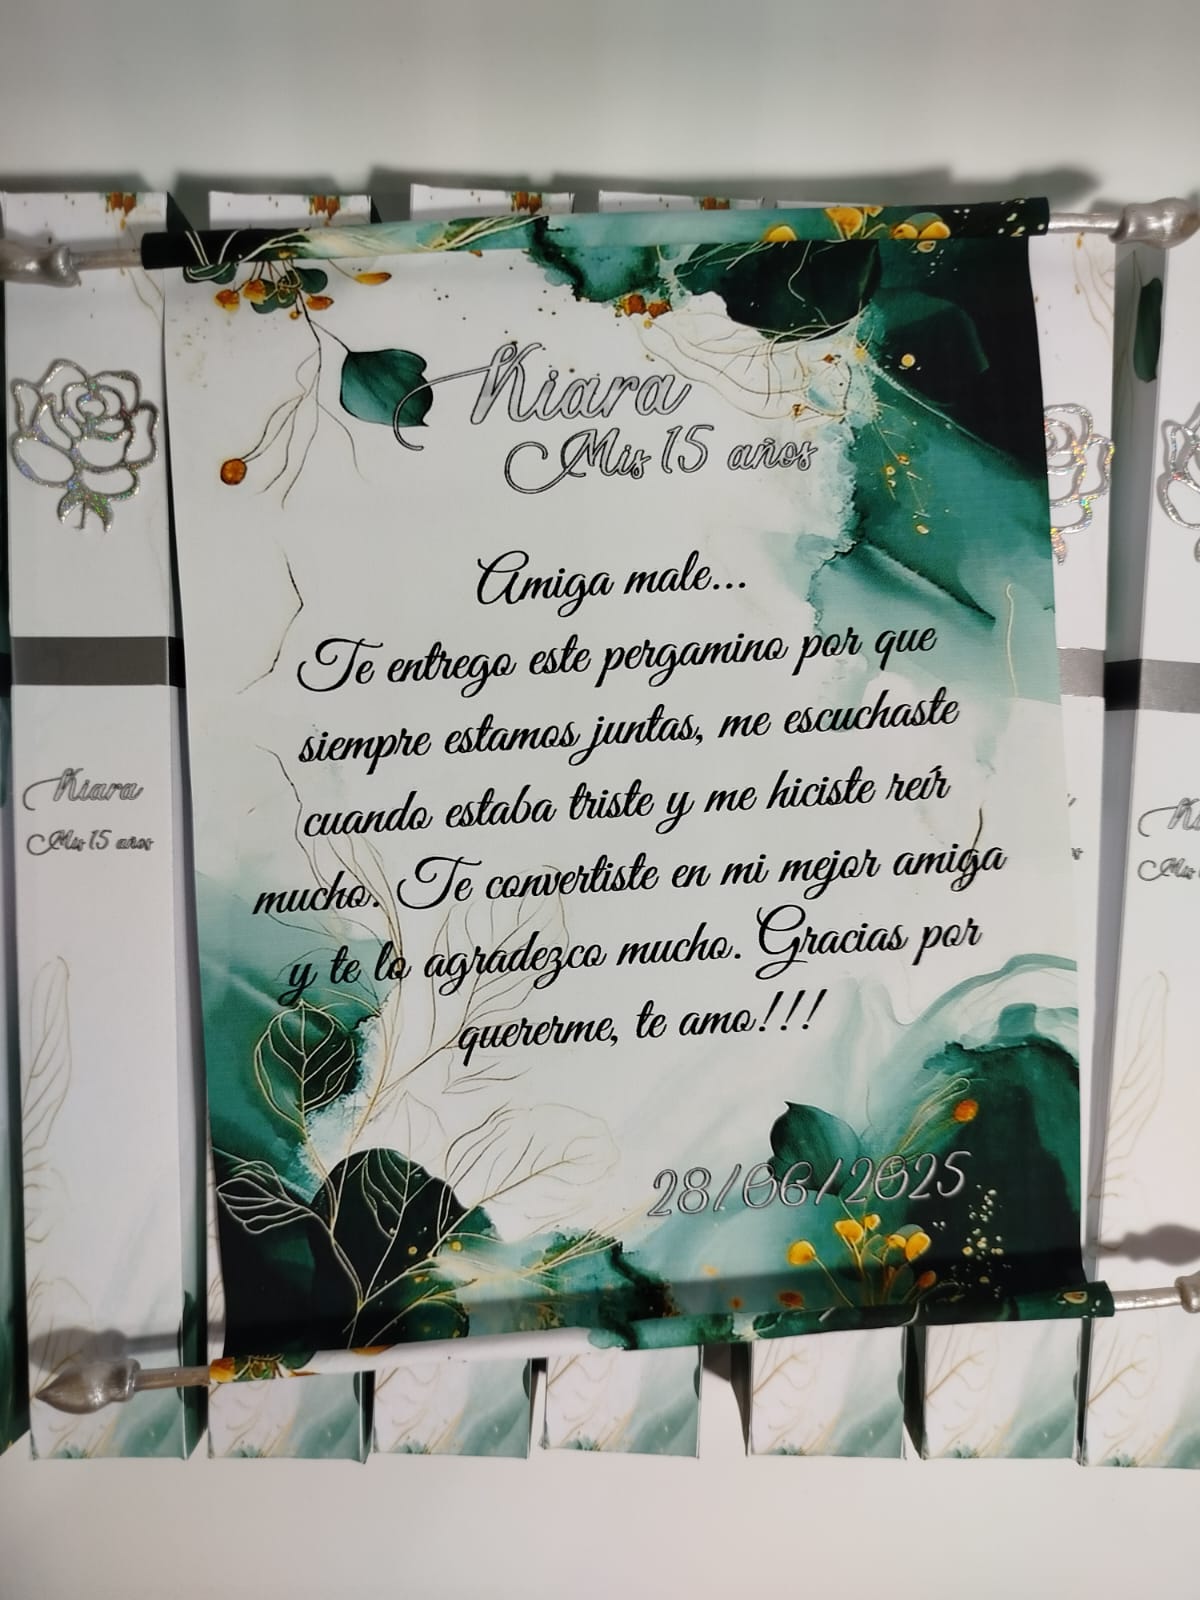 Kiara
Mis 15 años
Amiga male...
Te entrego este pergamino por que
siempre estamos juntas, me escuchaste
cuando estaba triste y me hiciste reír
mucho. Te convertiste en mi mejor amiga
y te lo agradezco mucho. Gracias por
quererme, te amo!!!
28/06/2025
Kiara
Mis 15 años